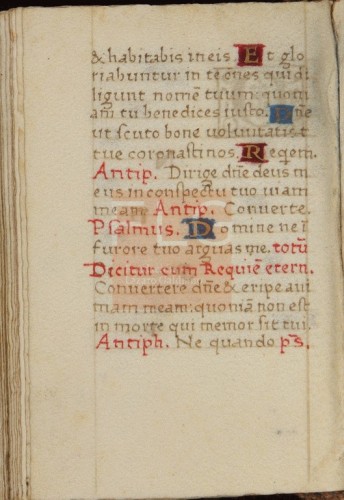 & habitabis in eis. Et glo
riabuntur in te õnes qui di
ligunt nomẽ tuum: quoni
am tu benedices iusto. Dñe
ut scuto bone voluntatis t
tue coronasti nos. Reqem.
Antip. Dirige dñe deus m
eus in conspectu tuo viam
meam. Antip. Converte.
Psalmus. Domine ne ĩ
furore tuo arguas me. totũ
Dicitur cum Requiẽ etern.
Convertere dñe & eripe ani
mam meam: quoniã non est
in morte qui memor sit tui.
Antiph. Ne quando ps.